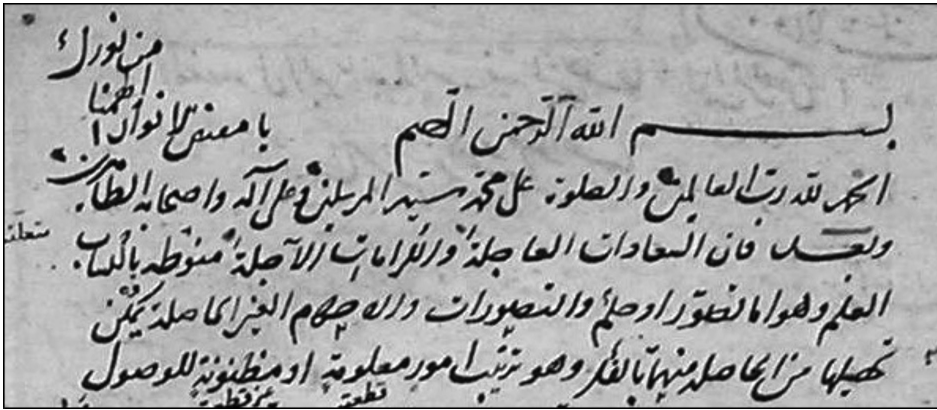 بسم الله الرحمن الرحيم
يا مفيض الانوار الهمنا من نورك
الحمد لله رب العالمين والصلوة على محمد سيد المرسلين وعلى آله واصحابه الطاهرين
وبعد فان السعادات العاجلة والكرامات الآجلة منوطة باكتساب
العلم وهو اما تصور او حكم والتصورات والاحكام الغير الحاصلة يمكن
تحصيلها من الحاصلة منها بالفكر وهو ترتيب امور معلومة او مظنونة للوصول